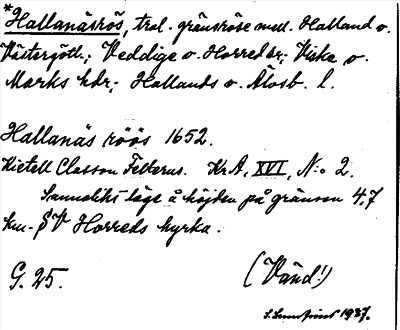 *Hallanäsrös, trol. gränsröse mell. Halland o.
Västergötl.; Veddige o. Horred sr; Viske o.
Marks hdr; Hallands o. Älvsb. l.
Hallanäs röös 1652.
Kietell Classon Felterus. KrA, XVI, N:o 2.
Sannolikt läge å höjden på gränsen 4,7
km. SV Horreds kyrka.
G. 25.
(Vänd!)
1937.